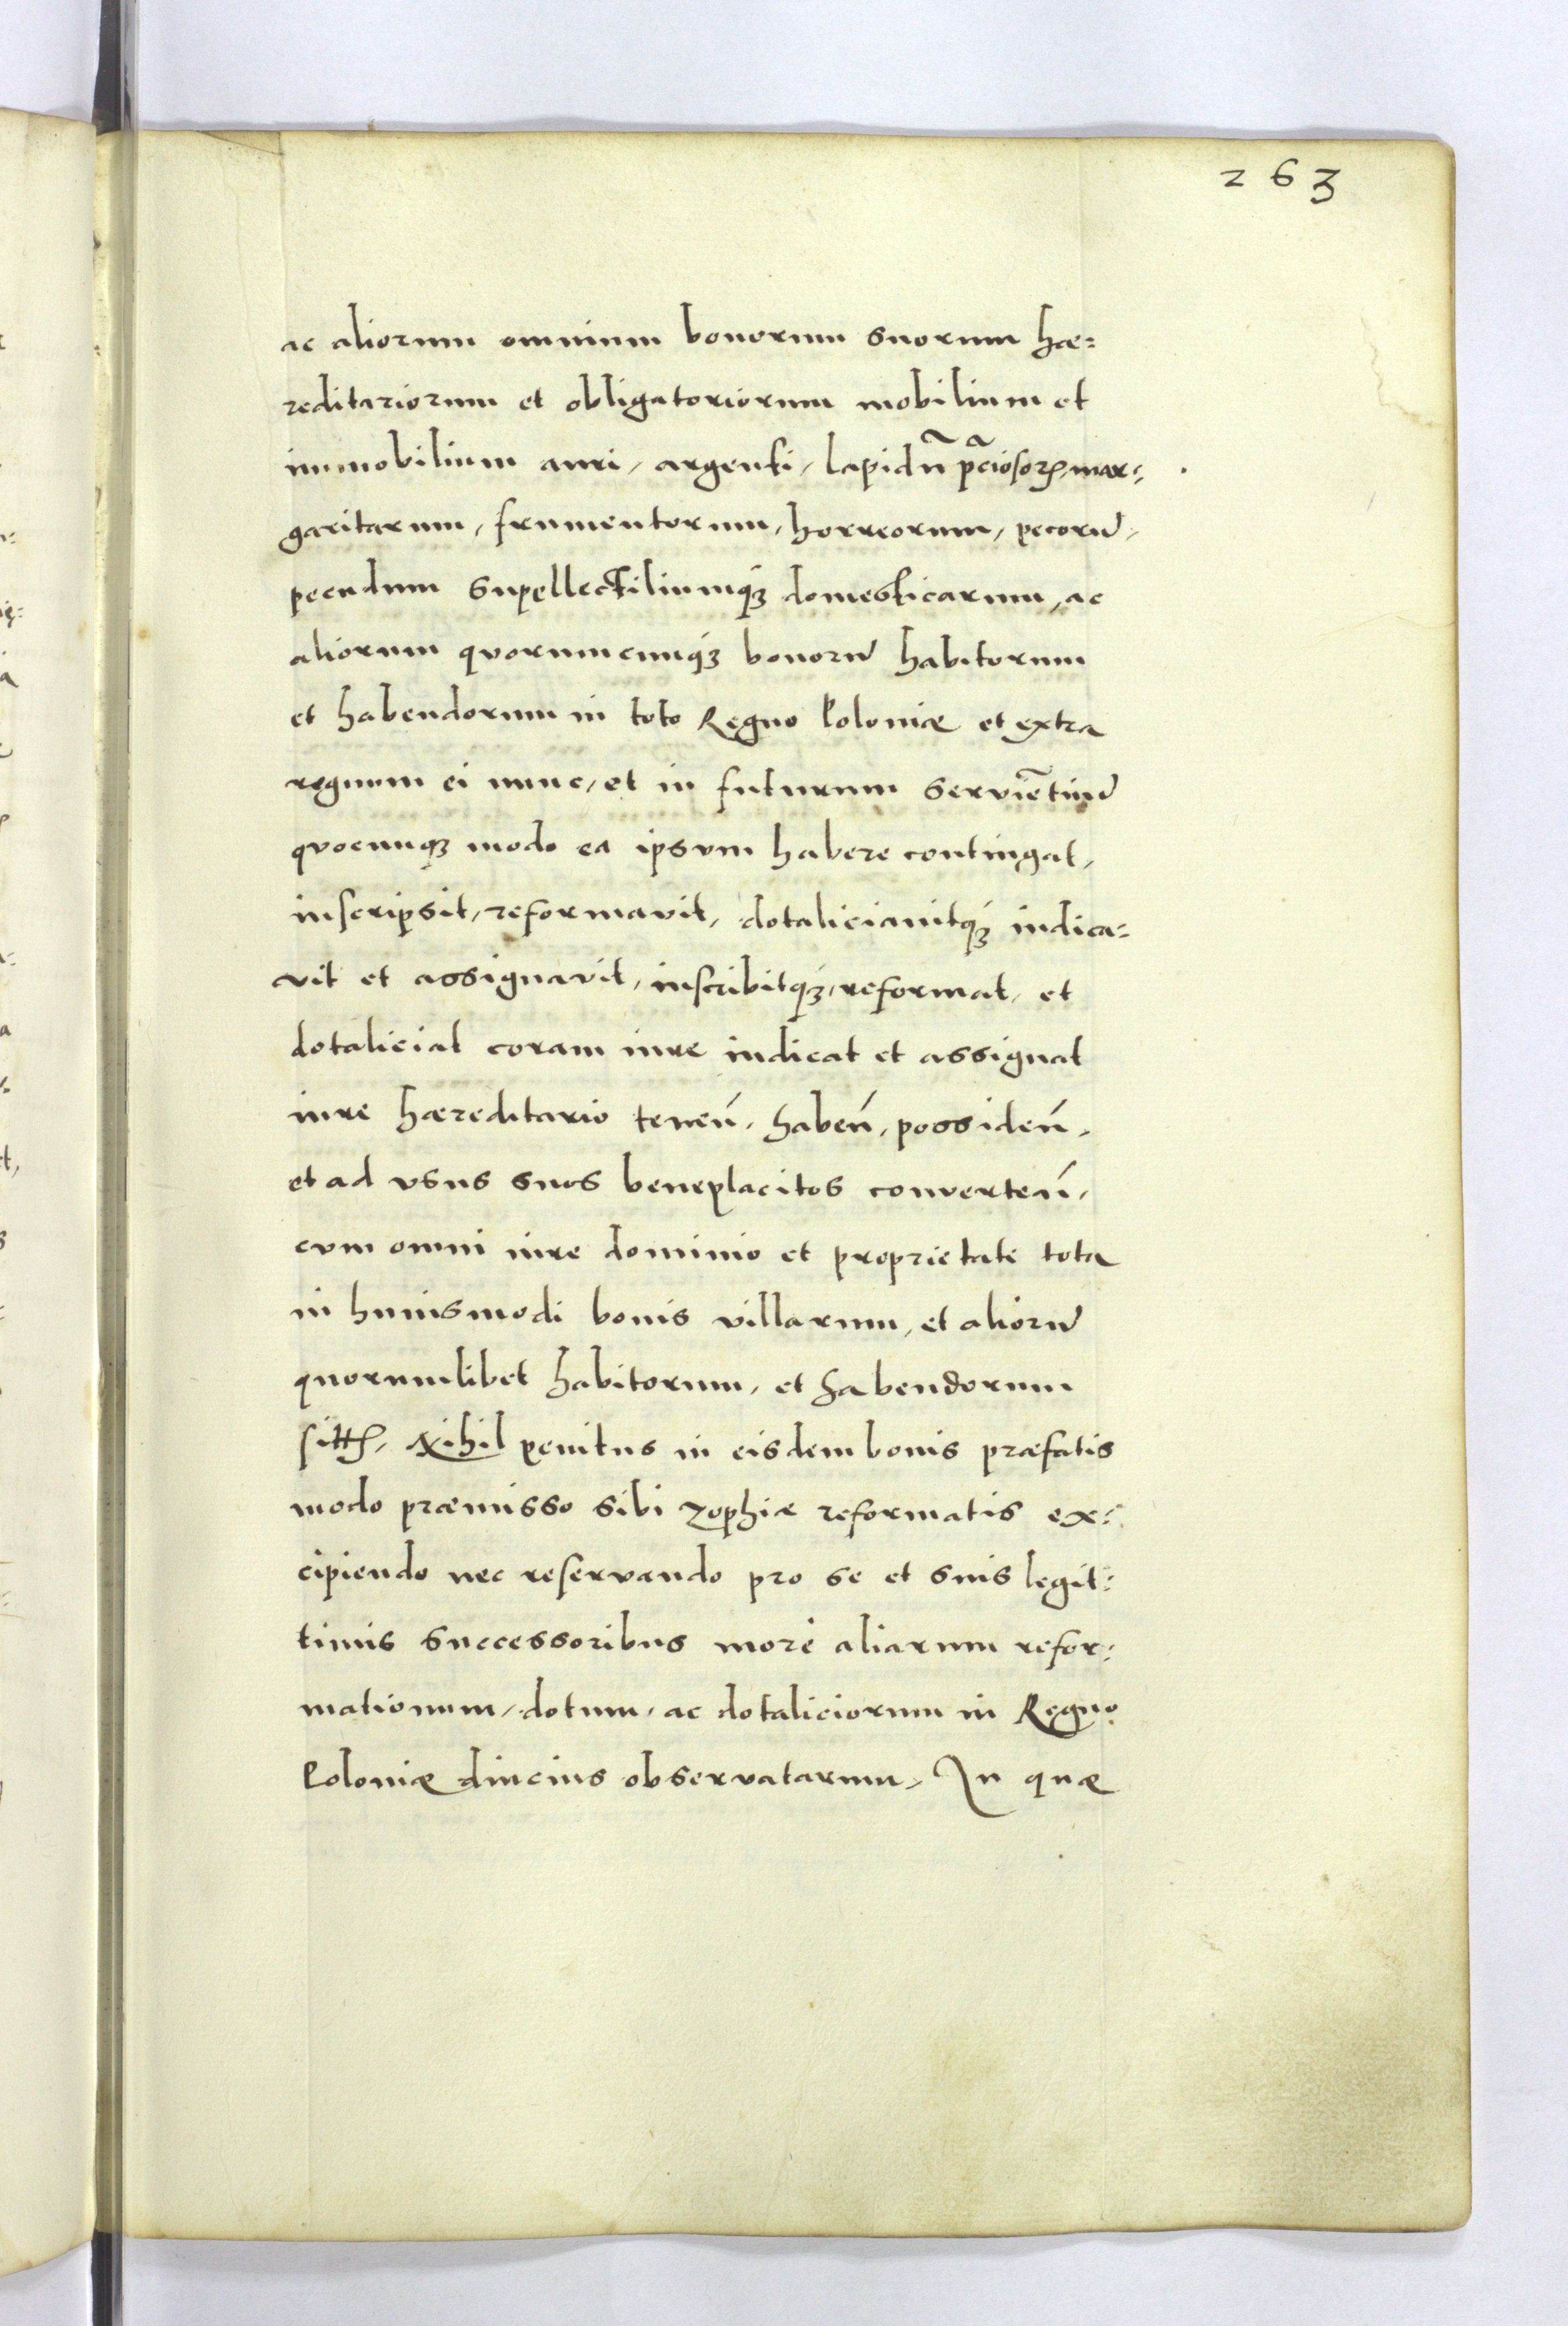 263
ac aliorum omnium bonorum suorum hæ=
reditariorum et obligatoriorum mobilium et
immobilium auri, argenti, lapidũ p̃ciosorꝝ, mar=
garitarum, frumentorum, horreorum, pecorũ,
pecudum supellectiliumqꝫ domesticarum, ac
aliorum quorumcumqꝫ bonorũ habitorum
et habendorum in toto Regno Poloniæ et extra
regnum ei nunc, et in futurum serviẽtiũ
quocunqꝫ modo ea ipsum habere contingat,
inscripsit, reformavit, dotaliciavitqꝫ indica=
vit et assignavit, inscribitqꝫ, reformat, et
dotaliciat coram iure indicat et assignat
iure hæreditario teneń, habeń, possideń,
et ad vsus suos beneplacitos converteń,
cum omni iure dominio et proprietate tota
in huiusmodi bonis villarum, et aliorũ
quorumlibet habitorum, et habendorum
sittꝫ, Nihil penitus in eisdem bonis præfatis
modo præmisso sibi Zophiæ reformatis ex=
cipiendo nec reservando pro se et suis legit=
timis successoribus more aliarum refor=
mationum, dotum, ac dotaliciorum in Regno
Poloniæ diucius observatarum, In quæ